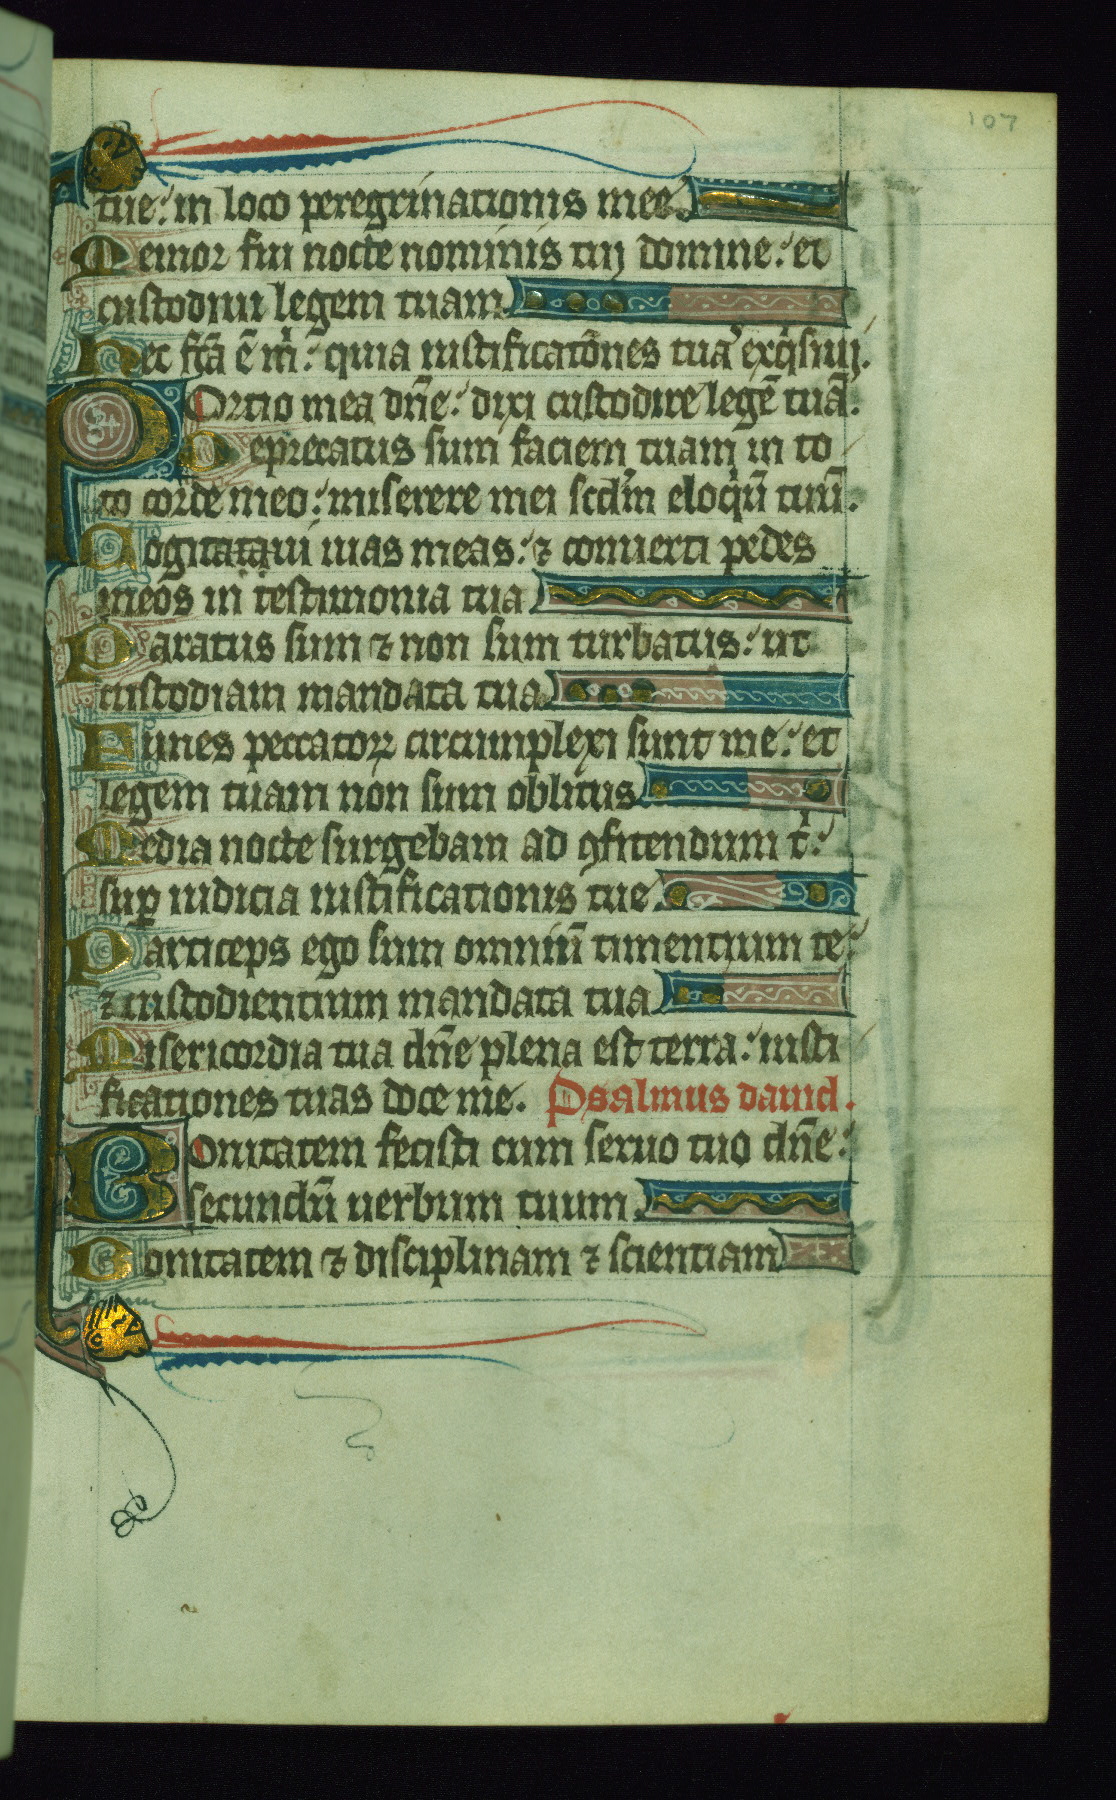 107
tue: in loco peregrinationis mee.
Memor fui nocte nominis tuj domine: et
custodiui legem tuam.
Hec fc̄a ē m̄: quia iustificatōnes tuaˀ exqͥsiuj.
Portio mea dn̄e: dixi custodire legē tuā.
Deprecatus sum faciem tuam in to
to corde meo: miserere mei scdm̄ eloqͥū tuū.
Cogitataui uias meas: ⁊ conuerti pedes
meos in testimonia tua
Paratus sum ⁊ non sum turbatus: ut
custodiam mandata tua.
Funes peccatoꝝ circumplexi sunt me: et
legem tuam non sum oblitus.
Media nocte surgebam ad ꝯfitendum t̄:
suꝑ iudicia iustificationis tue.
Particeps ego sum omniū timentium te:
⁊ custodientium mandata tua.
Misericordia tua dn̄e plena est terra: iusti
ficationes tuas doce me. Psalmus dauid.
Bonitatem fecisti cum seruo tuo dn̄e:
secundū uerbum tuum.
Bonitatem ⁊ disciplinam ⁊ scientiam